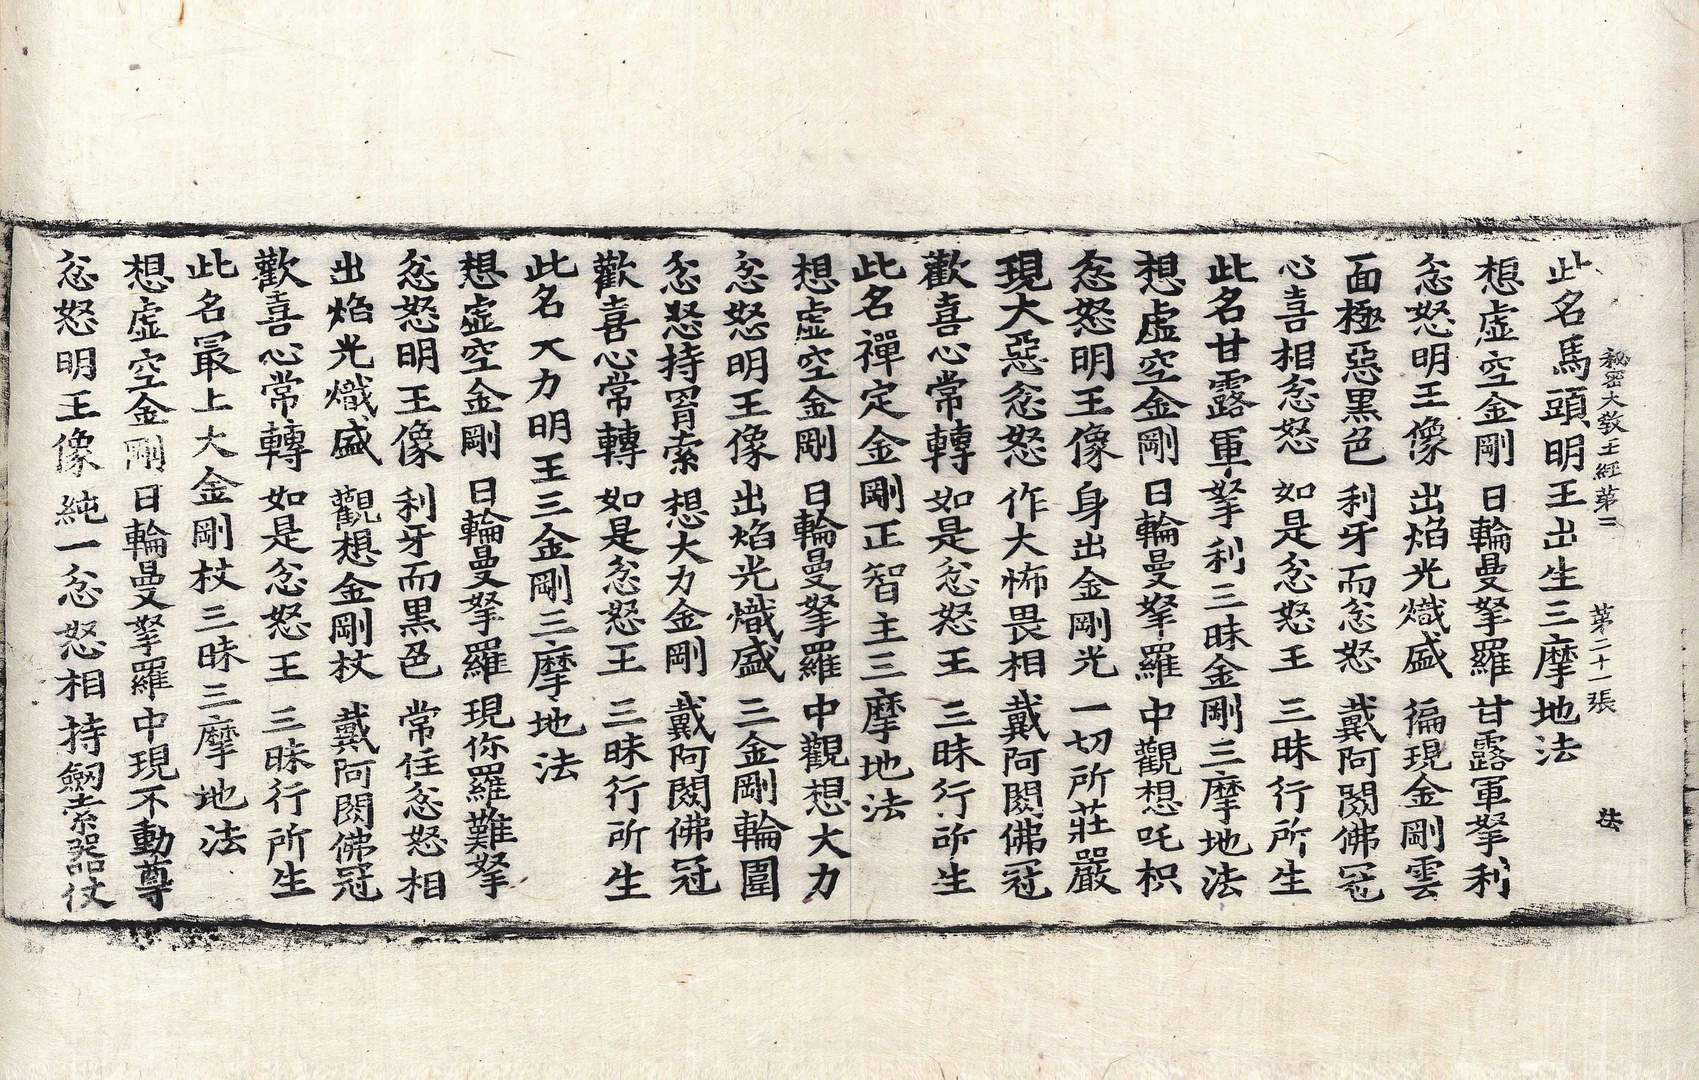 秘密大教王経第三　第二十一張　法
此名馬頭明王出生三摩地法
想虛空金剛　日輪曼拏羅　甘露軍拏利
忿怒明王像　出焰光熾盛　徧現金剛雲
面極惡黑色　利牙而忿怒　戴阿閦佛冠
心喜相忿怒　如是忿怒王　三昧行所生
此名甘露軍拏利三昧金剛三摩地法
想虛空金剛　日輪曼拏羅　中觀想吒枳
忿怒明王像　身出金剛光　一切所莊嚴
現大惡忿怒　作大怖畏相　戴阿閦佛冠
歡喜心常轉　如是忿怒王　三昧行所生
此名禪定金剛正智主三摩地法
想虛空金剛　日輪曼拏羅　中觀想大力
忿怒明王像　出焰光熾盛　三金剛輪圍
忿怒持罥索　想大力金剛　戴阿閦佛冠
歡喜心常轉　如是忿怒王　三昧行所生
此名大力明王三金剛三摩地法
想虛空金剛　日輪曼拏羅　現你羅難拏
忿怒明王像　利牙而黑色　常住忿怒相
出焰光熾盛　觀想金剛杖　戴阿閦佛冠
歡喜心常轉　如是忿怒王　三昧行所生
此名最上大金剛杖三昧三摩地法
想虛空金剛　日輪曼拏羅　中現不動尊
忿怒明王像　純一忿怒相　持劒索器仗